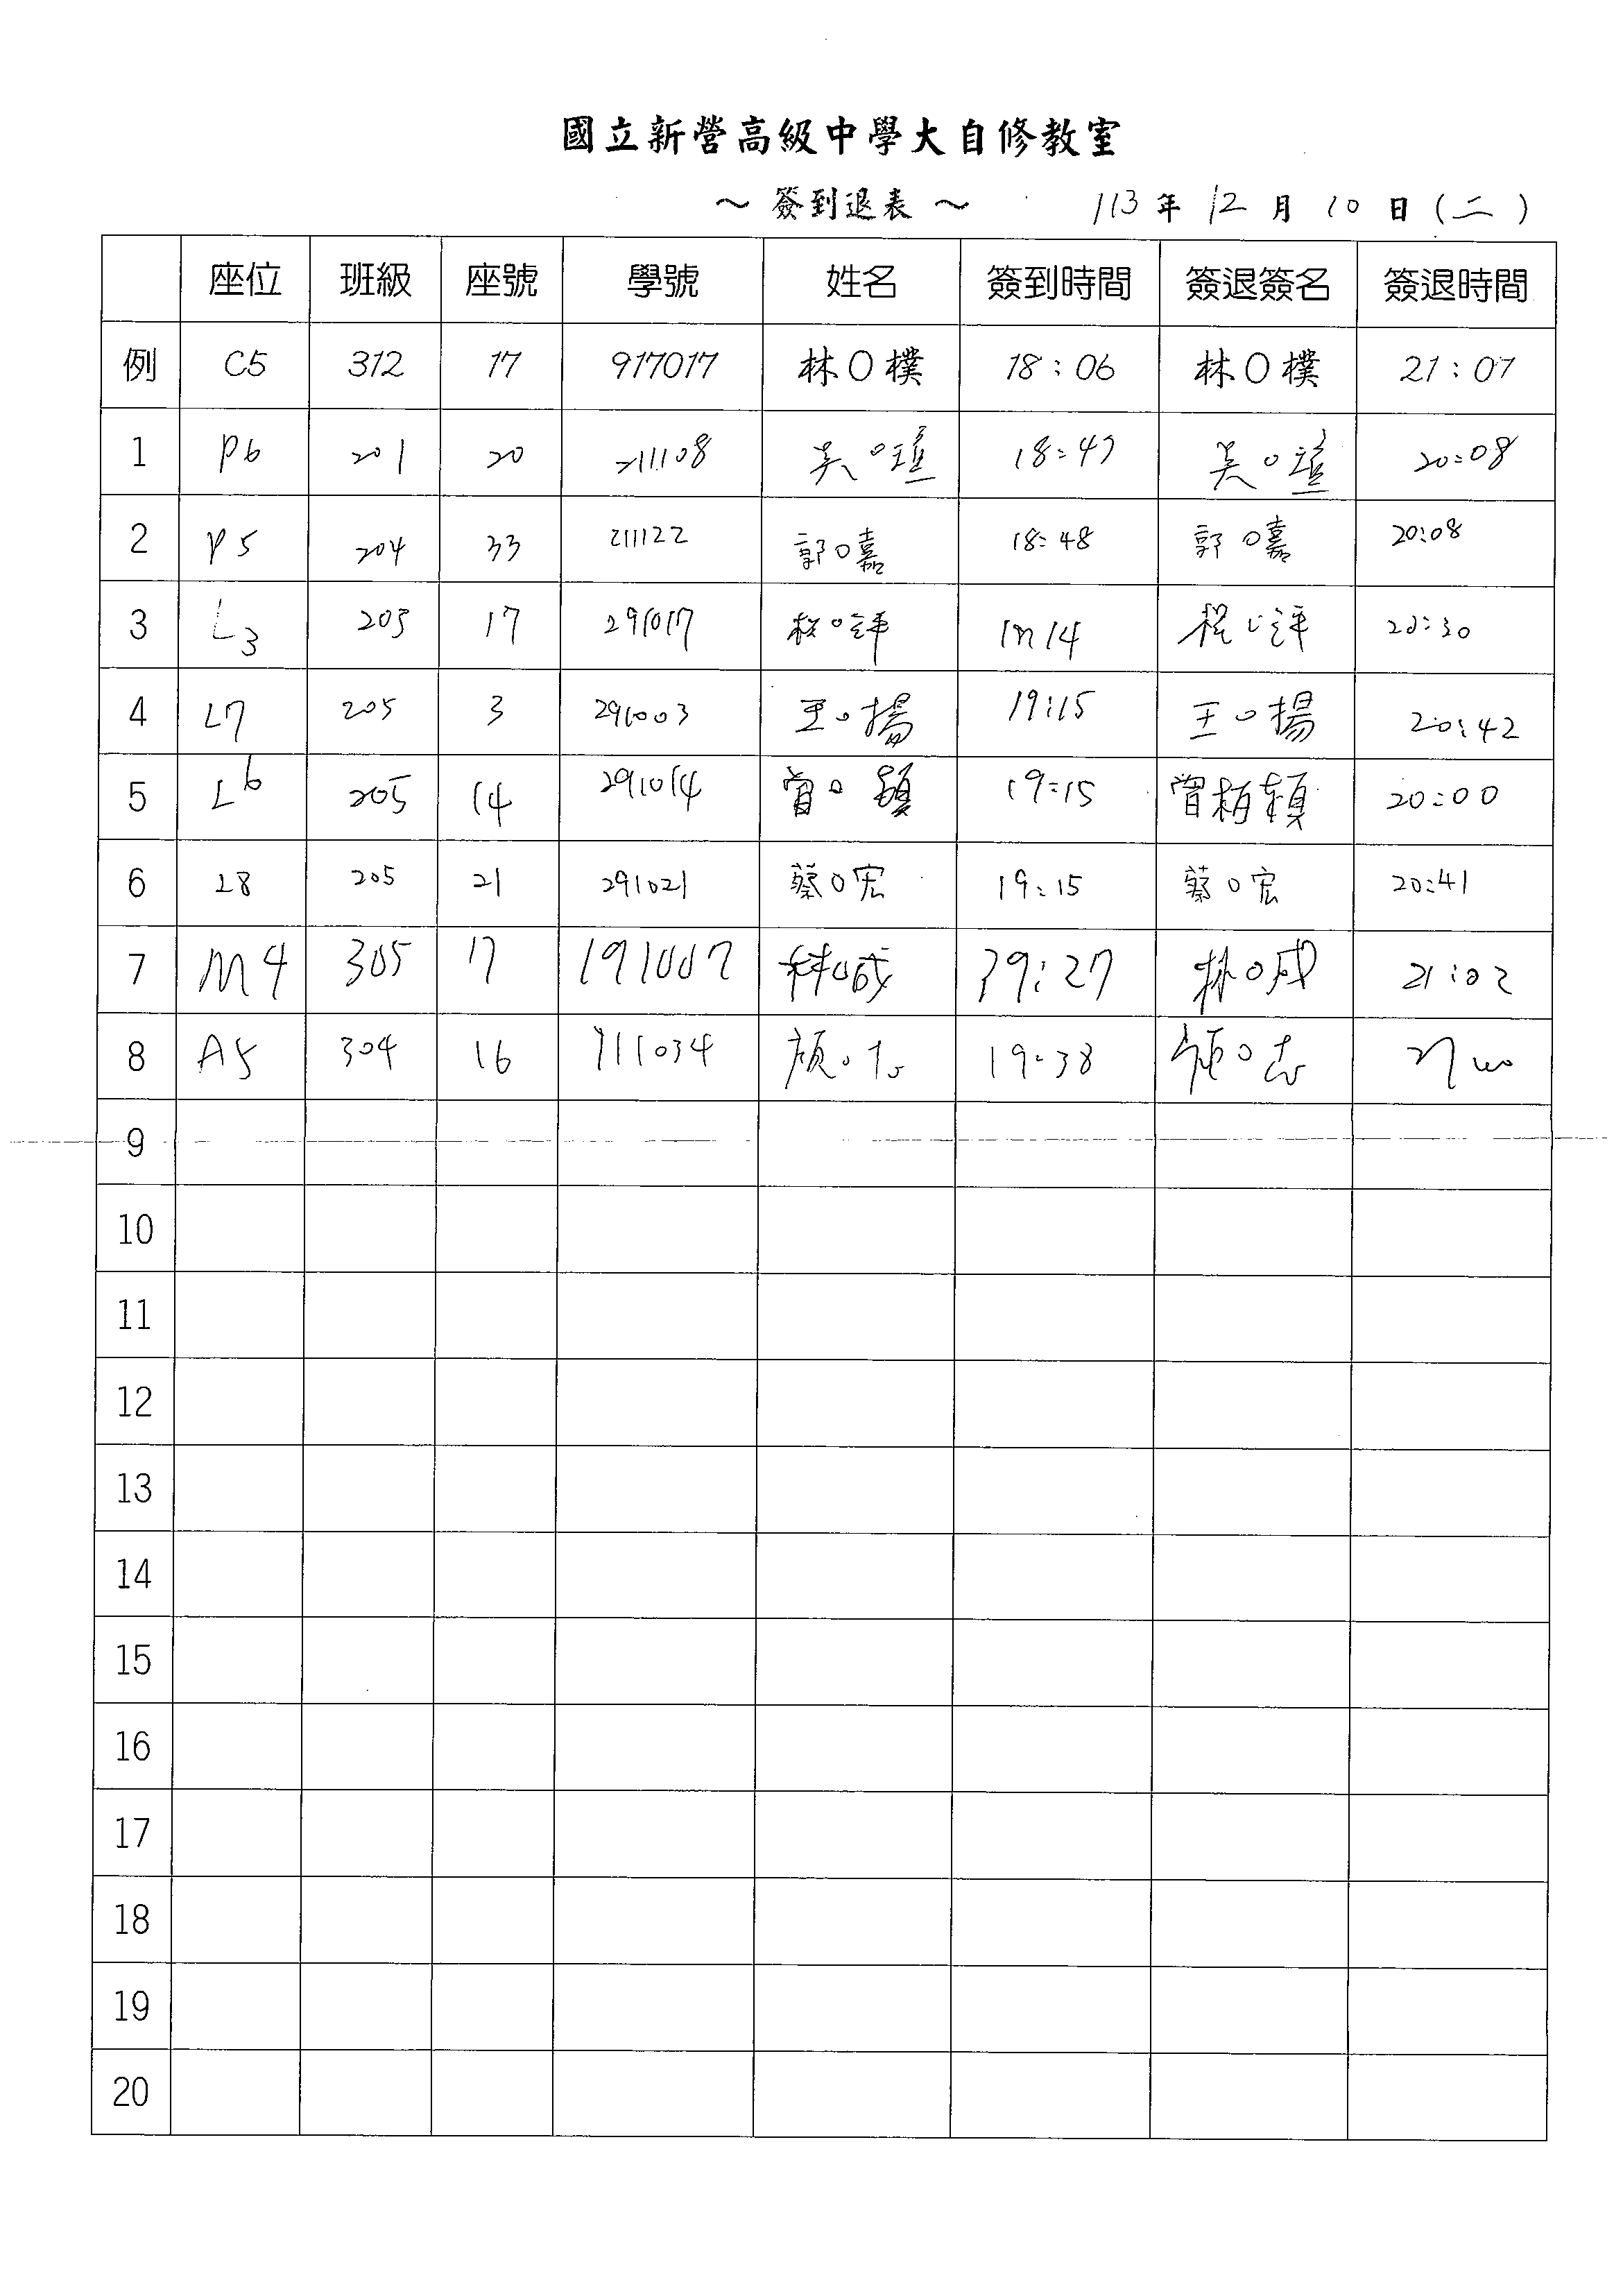 國立新營高級中學大自修教室
～ 簽到退表 ～ 113 年 12 月 10 日 (二)
座位 班級 座號 學號 姓名 簽到時間 簽退簽名 簽退時間
例 C5 312 17 917017 林O樸 18:06 林O樸 21:07
1 P6 201 20 211108 吳O瑄 18:47 吳O瑄 20:08
2 P5 204 33 211122 郭O嘉 18:48 郭O嘉 20:08
3 L3 205 17 291017 程O評 1914 程O評 20:30
4 L7 205 3 291003 王O揚 19:15 王O揚 20:42
5 L6 205 14 291014 曾O穎 19:15 曾柏穎 20:00
6 L8 205 21 291021 蔡O宏 19:15 蔡O宏 20:41
7 M4 305 17 191007 林O成 19:27 林O成 21:02
8 A5 304 16 111034 顏O志 19:38 顏O志
9
10
11
12
13
14
15
16
17
18
19
20